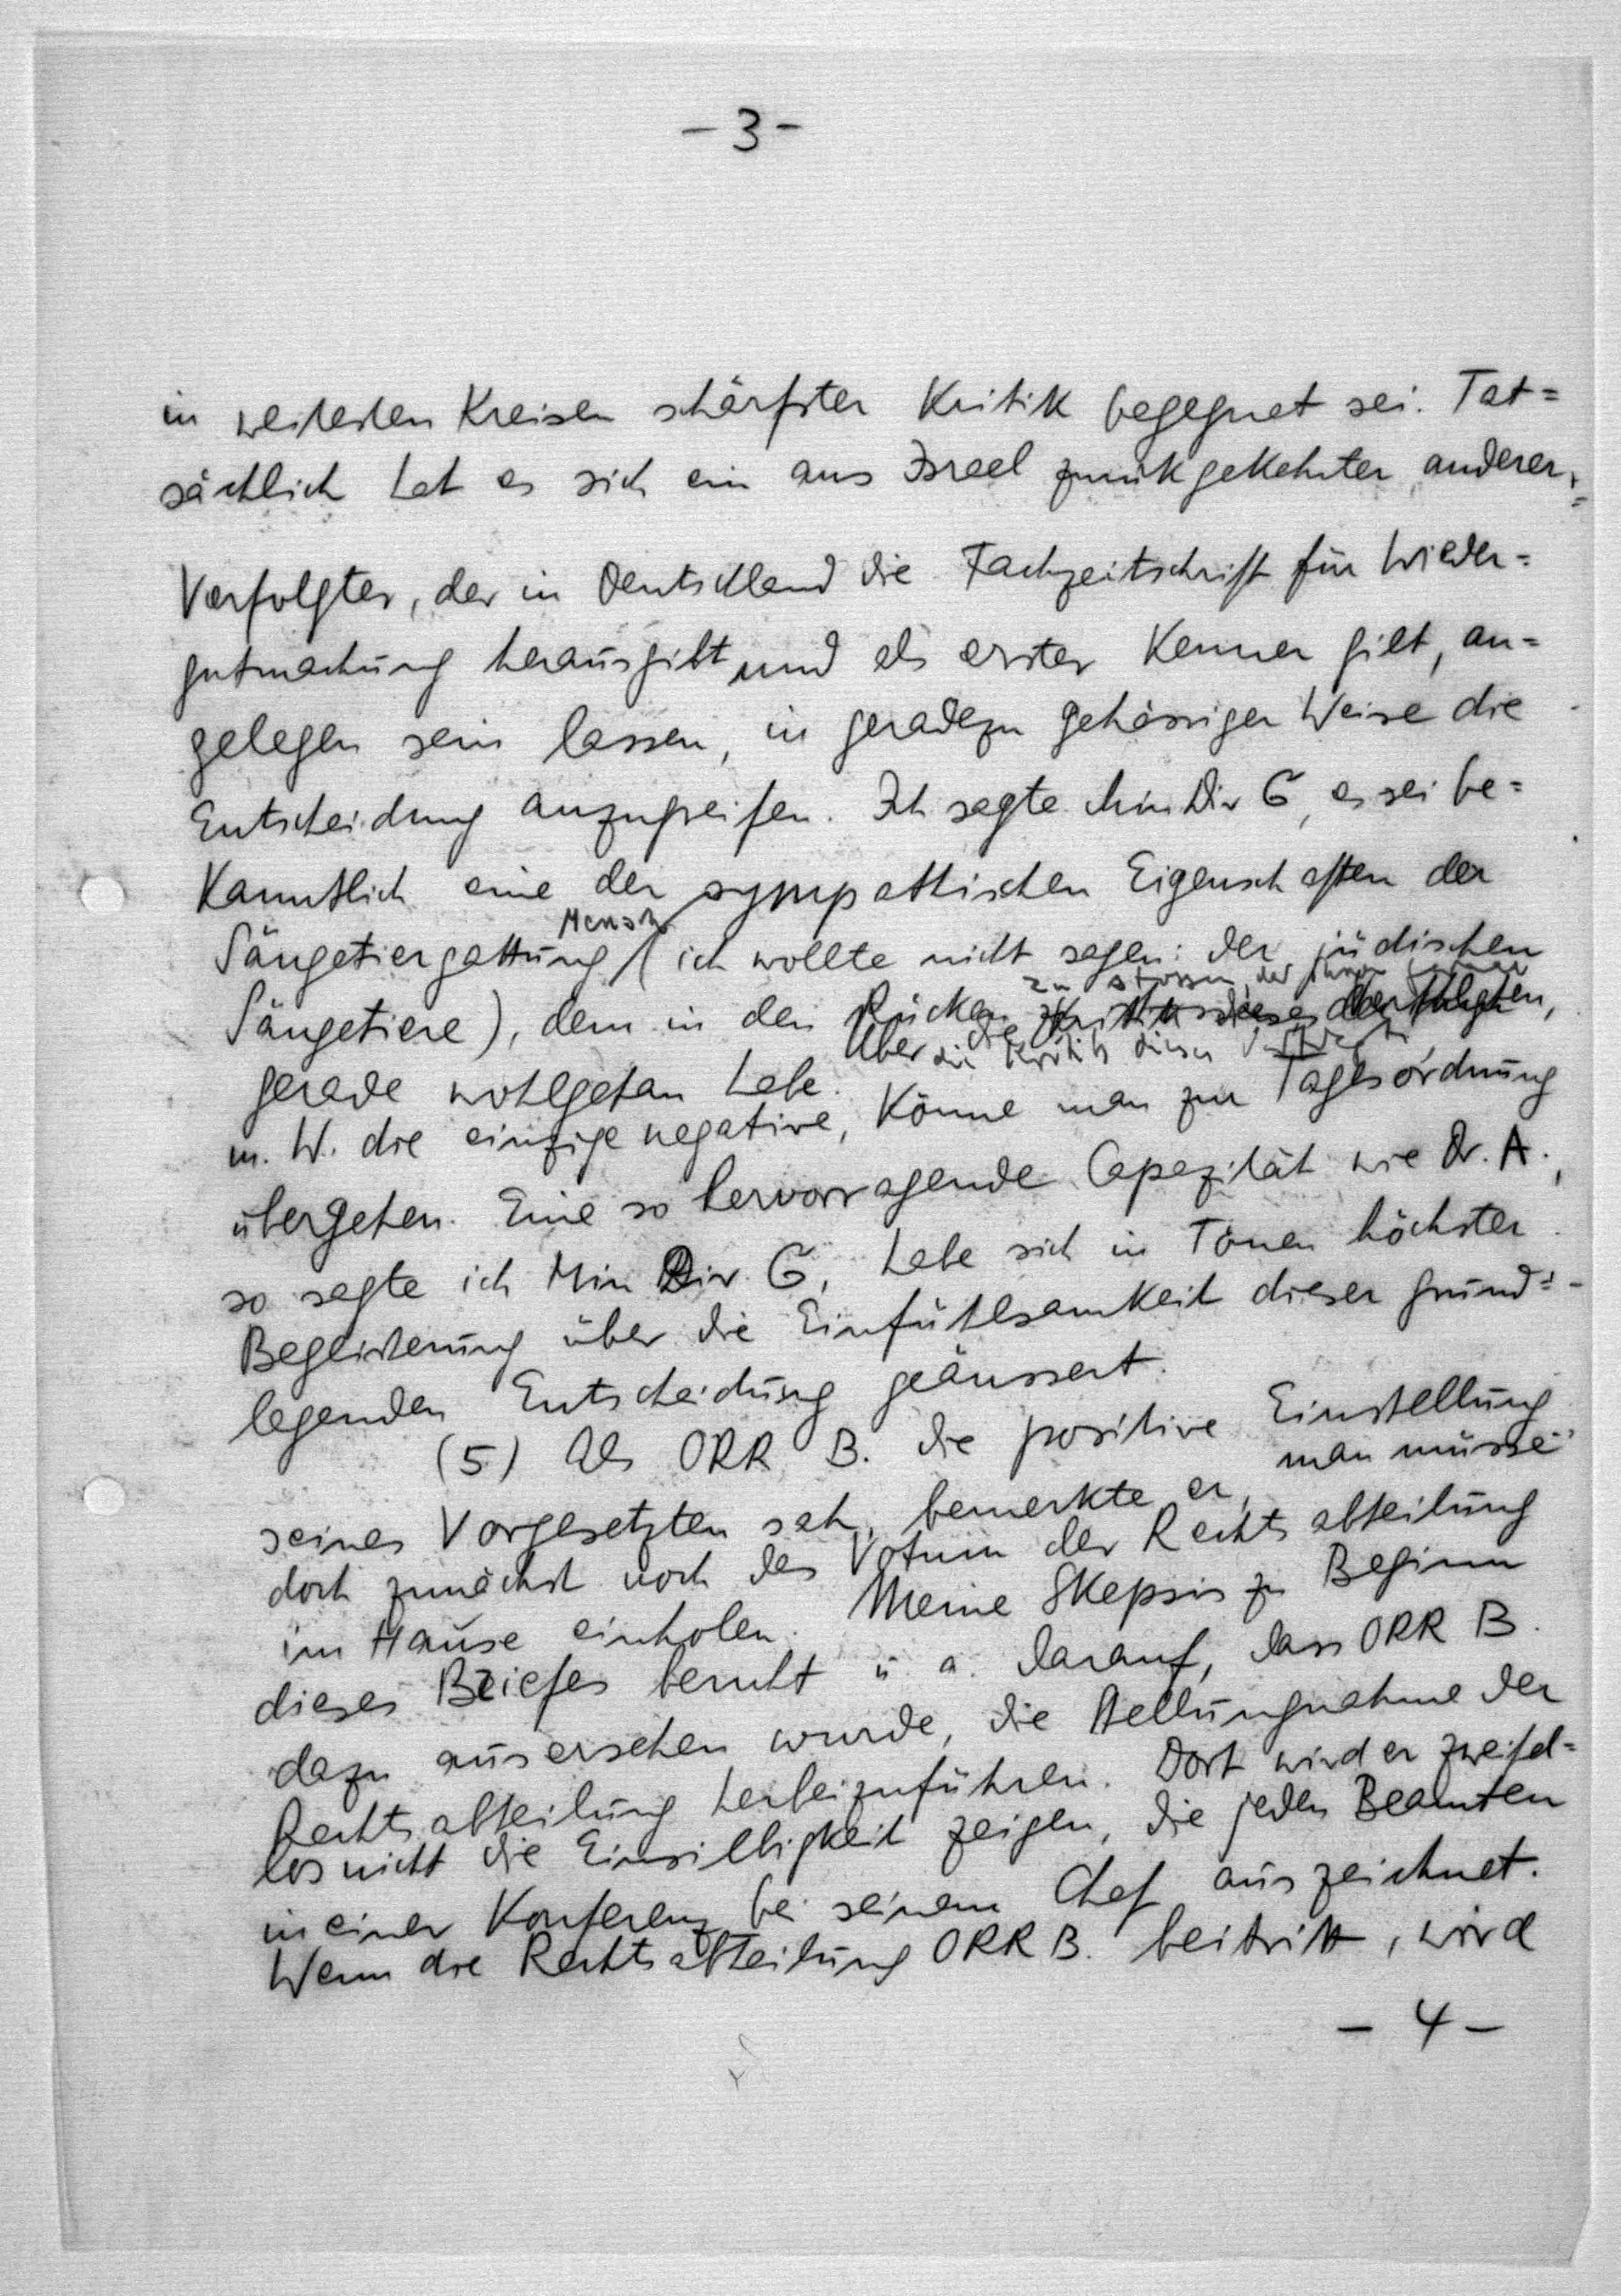 - 3 -
in weitesten Kreisen schärfster Kritik begegnet sei. Tat=
sächlich hat es sich ein aus Israel zurückgekehrter anderer
Verfolgter, der in Deutschland die Fachzeitschrift für Wieder=
gutmachung herausgibt und als erster Kenner gilt, an=
gelegen sein lassen, in geradezu gehässiger Weise die
Entscheidung anzugreifen. Ich sagte MinDir G, es sei be=
kanntlich eine der sympathischen Eigenschaften der
Mensch
Säugetiergattung (ich wollte nicht sagen: der jüdischen
zu stossen, der
Säugetiere), dem in den Rücken
gerade wohlgetan habe. Über die Kritik dieses
m. W. die einzige negative, könne man zur Tagesordnung
übergehen. Eine so hervorragende Capazität wie Dr. A.,
so sagte ich Min Dir. G, habe sich in Tönen höchster
Begeisterung über die Einfühlsamkeit dieser grund=
legenden Entscheidung geäussert.
(5) Als ORR B. die positive Einstellung
seines Vorgesetzten sah, bemerkte er, man müsse
doch zunächst noch das Votum der Rechtsabteilung
im Hause einholen. Meine Skepsis zu Beginn
dieses Briefes beruht u. a. darauf, dass ORR B.
dazu ausersehen wurde, die Stellungnahme der
Rechtsabteilung herbeizuführen. Dort wird er zweifel=
los nicht die Einsilbigkeit zeigen, die jeden Beamten
in einer Konferenz bei seinem Chef auszeichnet.
Wenn die Rechtsabteilung ORR B. beitritt, wird
- 4 -